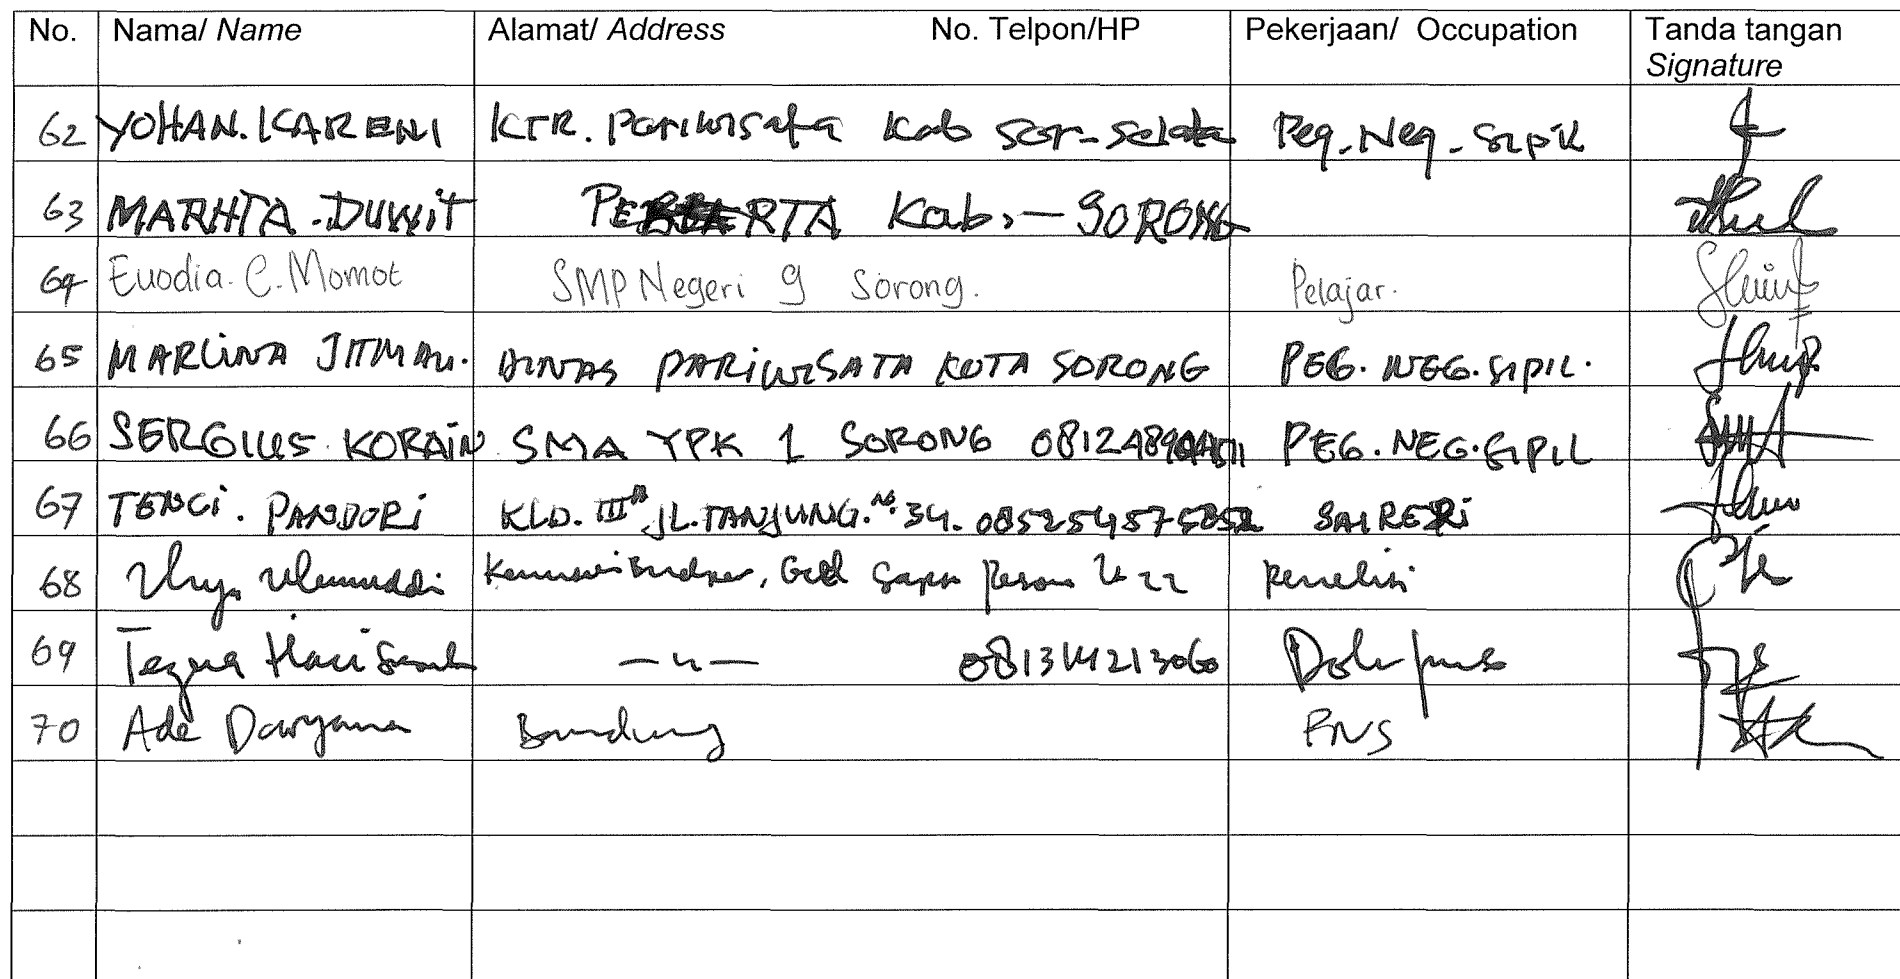 No. Nama/ Name Alamat/ Address No. Telpon/HP Pekerjaan/ Occupation Tanda tangan
Signature
62 YOHAN. KARENI KTR. Pariwisata Kab Sor-Selata Peg. Neg. Sipil
63 MARHTA. DUWIT KAb,- SORONG
64 Euodia. C. Momot SMP Negeri 9 Sorong. Pelajar.
65 MARLINA JITMAU. DINAS PARIWISATA KOTA SORONG PEG. NEG. SIPIL.
66 SERGIUS KORAIN SMA YPK 1 SORONG PEG. NEG. SIPIL
67 TENCI. PANDORI KLD. III JL. TANJUNG. No. 34. SAIRERI
68 Gd Sapta Pesona Lt 22 Peneliti
69 Hari -"-
70 Ade Daryana Bandung PNS